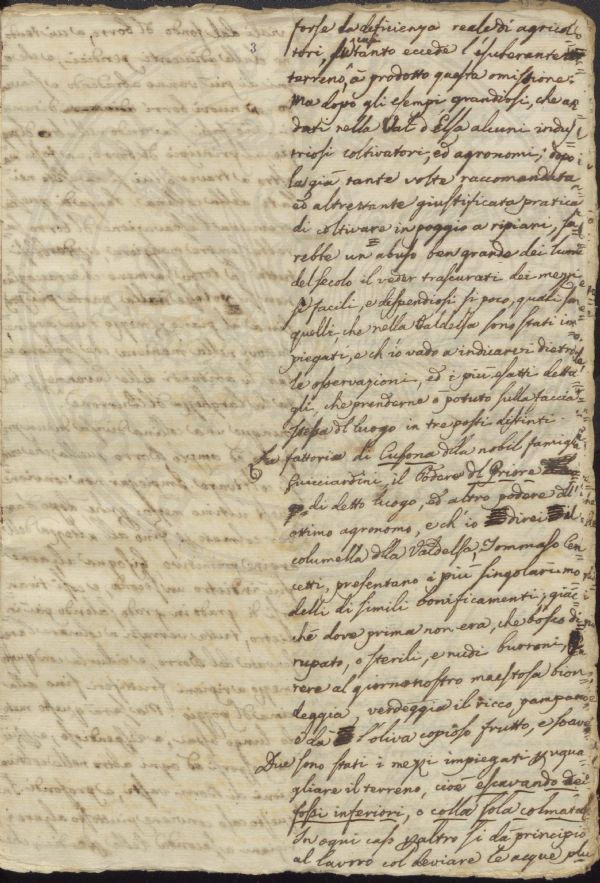 3
forse la deficienza reale di agricol
tori, cui tanto eccede l'esuberante
terreno, à prodotto questa omissione;
Ma dopo gli esempi grandiosi, che an
dati nella Val d'Elsa alcuni indu
striosi coltivatori, ed agronomi, dopo
la già tante volte raccomandata
ed altrettante giustificata pratica
di coltivare in poggio a ripiani, sa
rebbe un abuso ben grande dei lumi
del secolo il veder trascurati dei mezzi
sì facili, e dispendiosi sì poco, quali son
quelli che nella Valdelsa sono stati im
piegati, e ch'io vado a indicarvi dietro
le osservazioni, ed i più esatti detta
gli, che prenderne o potuto sulla faccia
stessa del luogo in tre posti distinti.
La fattoria di Cusona della nobil famiglia
Guicciardini, il Podere del Priore
di detto luogo, ed altro podere dell'
ottimo agronomo, e ch'io direi il
columella della Valdelsa, Tommaso Cen
cetti, presentano i più singolari mo
delli di simili bonificamenti; giac
chè dove prima non era, che bosco di
rupato, o sterili, e nudi burroni,
rere al giorno nostro maestosa bion
deggia, verdeggia il ricco pampano
e dà l'oliva copioso frutto, e soave
Due sono stati i mezzi impiegati per ugua
gliare il terreno, cioè escavando dei
fossi inferiori, o colla sola colmata
In ogni caso peraltro si dà principio
al lavoro col deviare le acque plu